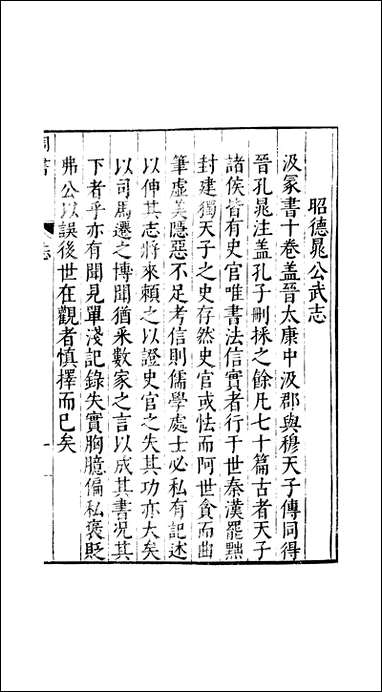 昭德晁公武志
汲冢書十卷蓋晉太康中汲郡與穆天子傳同得
晉孔晁注盖孔子刪採之餘凡七十篇古者天子
諸侯皆有史官唯書法信實者行于世秦漢罷黜
封建獨天子之史存然史官或怯而阿世貪而曲
筆虛美隱惡不足考信則儒學處士必私有記述
以伸其志將來賴之以證史官之失其功亦大矣
以司馬遷之博聞猶采數家之言以成其書况其
下者乎亦有聞見單淺記錄失實胸臆偏私褒貶
弗公以誤後世在觀者慎擇而已矣
周書 志 一